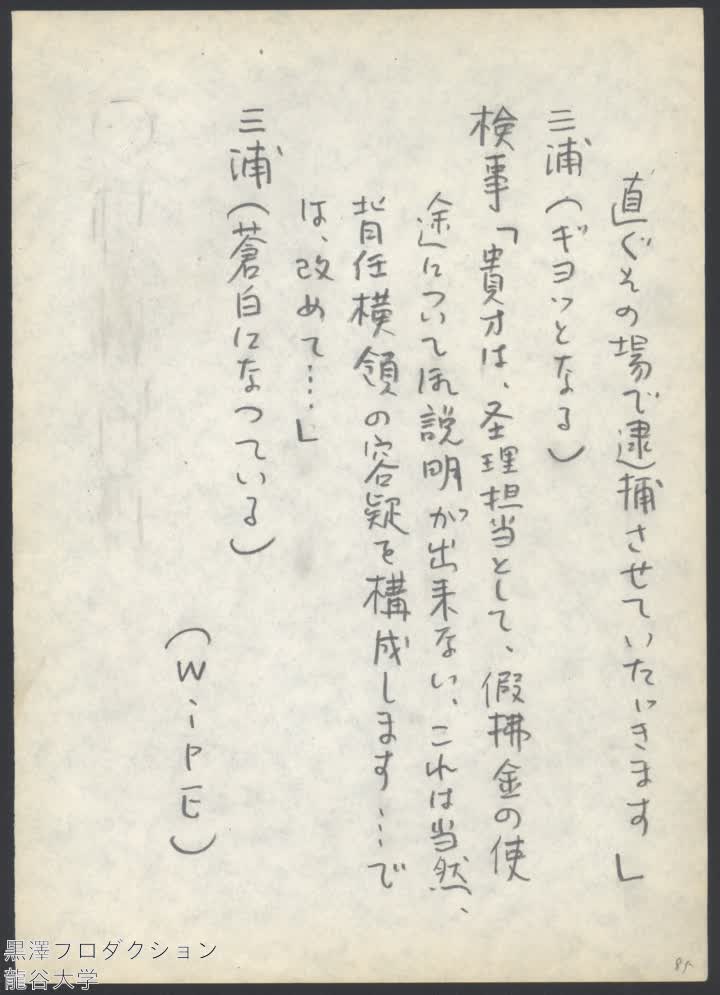 直ぐその場で逮捕させていたゞきます」
三浦(ギヨッとなる)
検事「貴方は、圣理担当として、假拂金の使
途について説明が出来ない、これは当然、
背任横領の容疑を構成します…で
は、改めて…」
三浦(蒼白になつている)
(WiPE)
85
黒澤プロダクション
龍谷大学